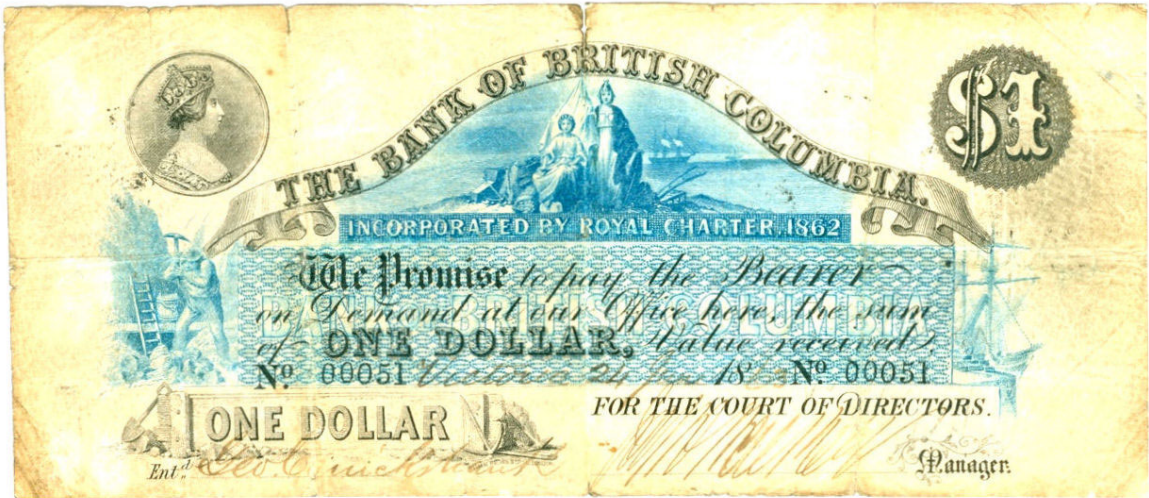 THE BANK OF BRITISH COLUMBIA.
$1
INCORPORATED BY ROYAL CHARTER, 1862
We Promise to pay the Bearer
on Demand at our Office here, the sum
of ONE DOLLAR, Value received.
BANK OF BRITISH COLUMBIA
No 00051 Victoria 18 No 00051
ONE DOLLAR
FOR THE COURT OF DIRECTORS.
Entd. Manager.